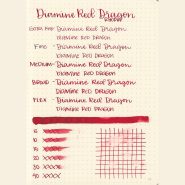 Diamine Red Dragon
Extra Fine - Diamine Red Dragon
Diamine Red Dragon
Fine - Diamine Red Dragon
Diamine Red Dragon
Medium - Diamine Red Dragon
Diamine Red Dragon
Broad - Diamine Red Dragon
Diamine Red Dragon
Flex - Diamine Red Dragon
Diamine Red Dragon
5 XXXXX
10 XXXXX
15 XXXXX
20 XXXX
30 XXXX
40 XXXX